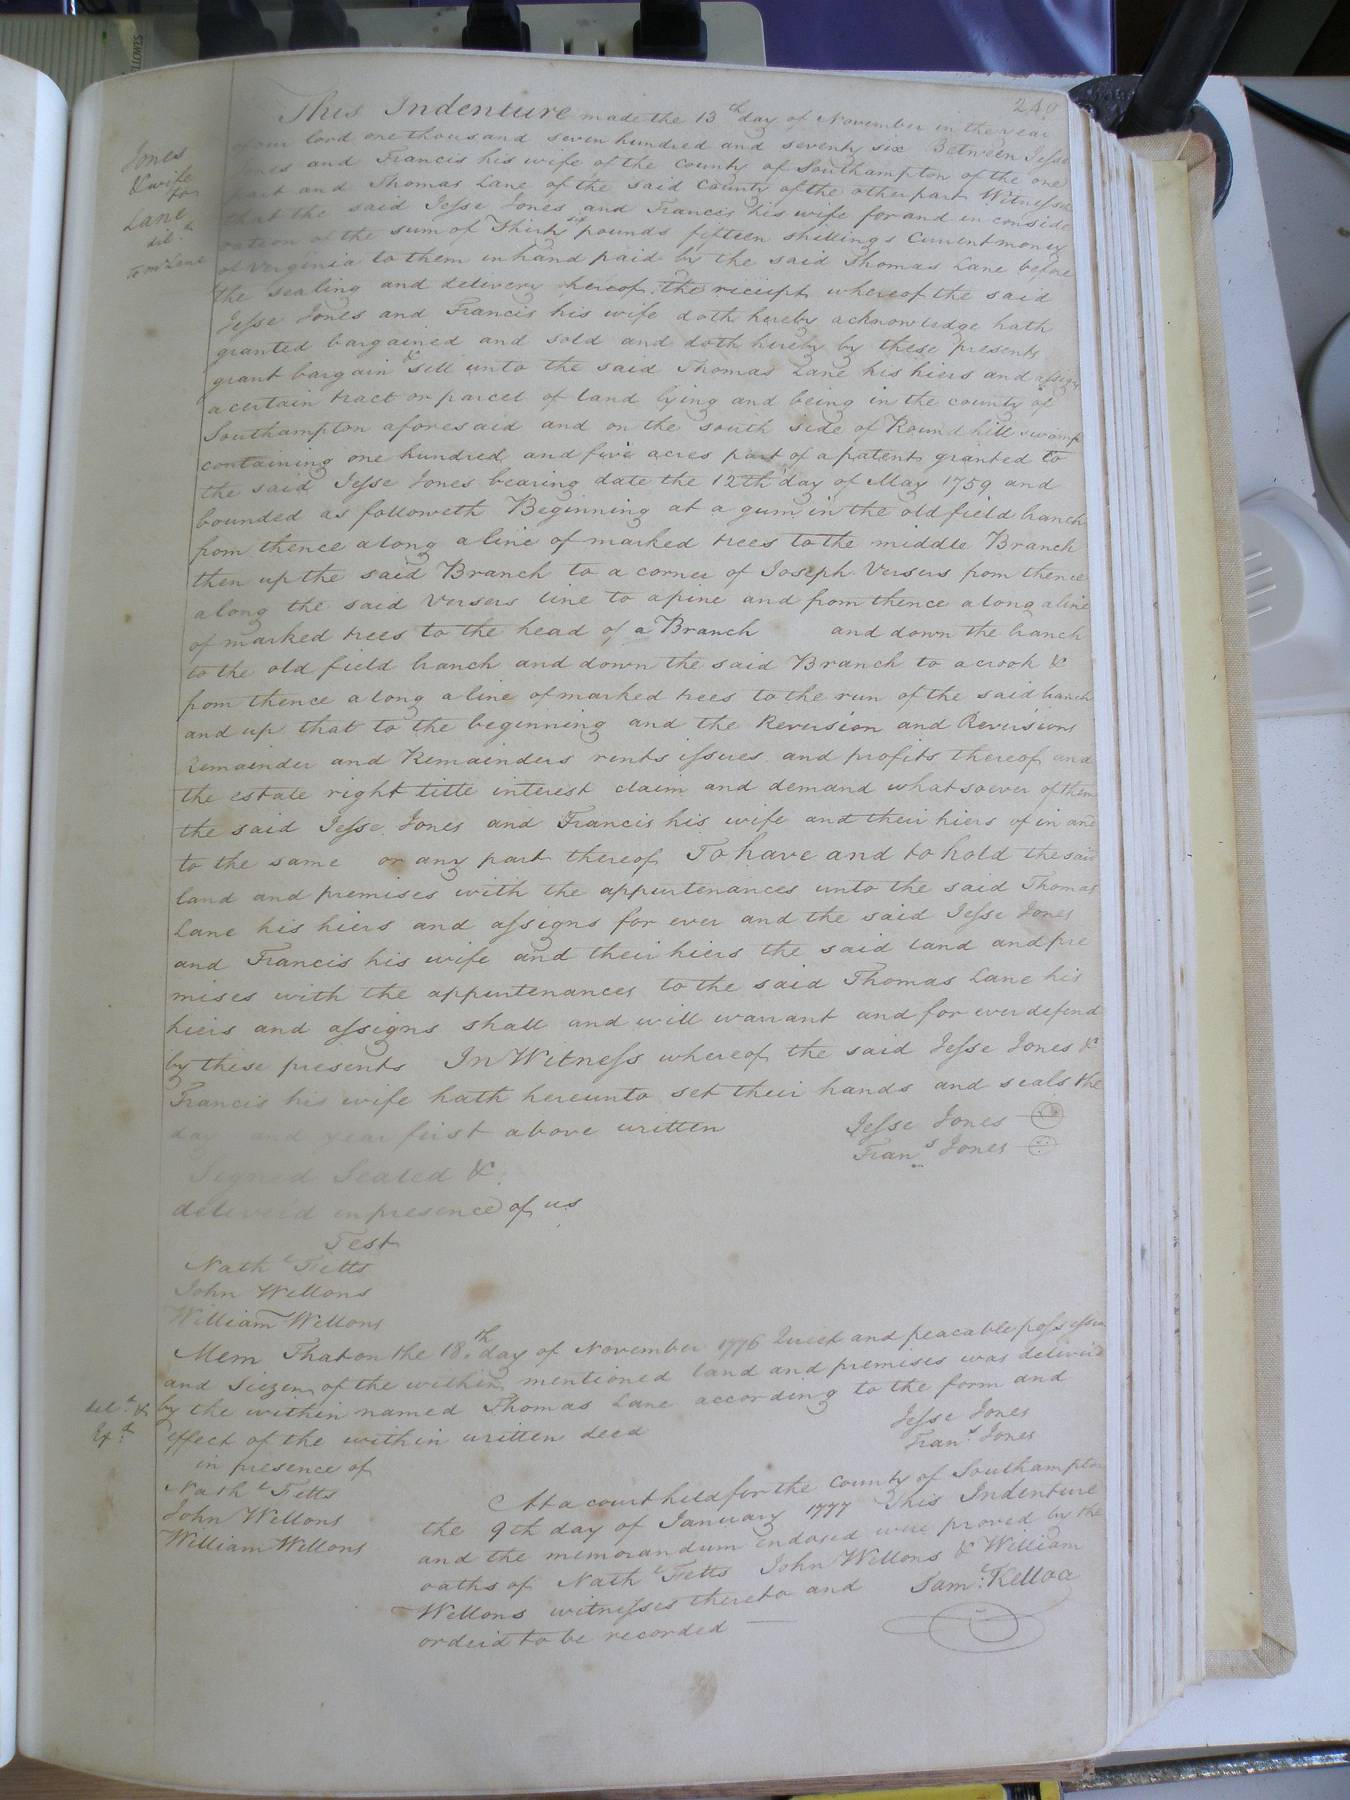 This Indenture made the 13th day of November in the year
of our lord one thousand seven hundred and seventy six Between Jesse
Jones and Francis his wife of the County of Southampton of the one
part and Thomas Lane of the said County of the other part Witnesseth
that the said Jesse Jones and Francis his wife for and in conside
ration of the sum of Thirty six pounds fifteen shillings Current money
of Virginia to them in hand paid by the said Thomas Lane before
the sealing and delivery hereof the reciept whereof the said
Jesse Jones and Francis his wife doth hereby acknowledge hath
granted bargained and sold and doth hereby by these presents
grant bargain & sell unto the said Thomas Lane his hiers and assigns
a certain tract or parcel of land lying and being in the county of
Southampton aforesaid and on the south side of Round hill swamp
containing one hundred and five acres part of a patent granted to
the said Jesse Jones bearing date the 12th day of May 1759 and
bounded as followeth Beginning at a gum in the old field branch
from thence along a line of marked trees to the middle Branch
then up the said Branch to a corner of Joseph Versers from thence
along the said Versers line to a pine and from thence along a line
of marked trees to the head of a Branch and down the branch
to the old field branch and down the said Branch to a crook &
from thence along a line of marked trees to the run of the said branch
and up that to the beginning and the Reversion and Reversions
Remainder and Remainders rents issues and profits thereof and
the estate right title interest claim and demand whatsoever of them
the said Jesse Jones and Francis his wife and their hiers of in and
to the same or any part thereof To have and to hold the said
land and premises with the appurtenances unto the said Thomas
Lane his hiers and assigns for ever and the said Jesse Jones
and Francis his wife and their hiers the said land and pre
mises with the appurtenances to the said Thomas Lane his
hiers and assigns shall and will warrant and for ever defend
by these presents In Witness whereof the said Jesse Jones &
Francis his wife hath hereunto set their hands and seals the
day and year first above written
Jesse Jones
Frans Jones
Signed Sealed &
deliver'd in presence of us
Test
Nathl Fitts
John Wellons
William Wellons
Mem That on the 18th day of November 1776 Quiet and peacable possession
and Siezen of the within mentioned land and premises was deliver'd
by the within named Thomas Lane according to the form and
effect of the within written deed
Jesse Jones
Frans Jones
in presence of
Nathl Fitts
John Wellons
William Wellons
At a court held for the County of Southampton
the 9th day of January 1777 This Indenture
and the memorandum endosed were proved by the
oaths of Nathl Fitts John Wellons & William
Wellons witnesses thereto and
orderd to be recorded
Saml Kello
Jones
& wife
to
Lane